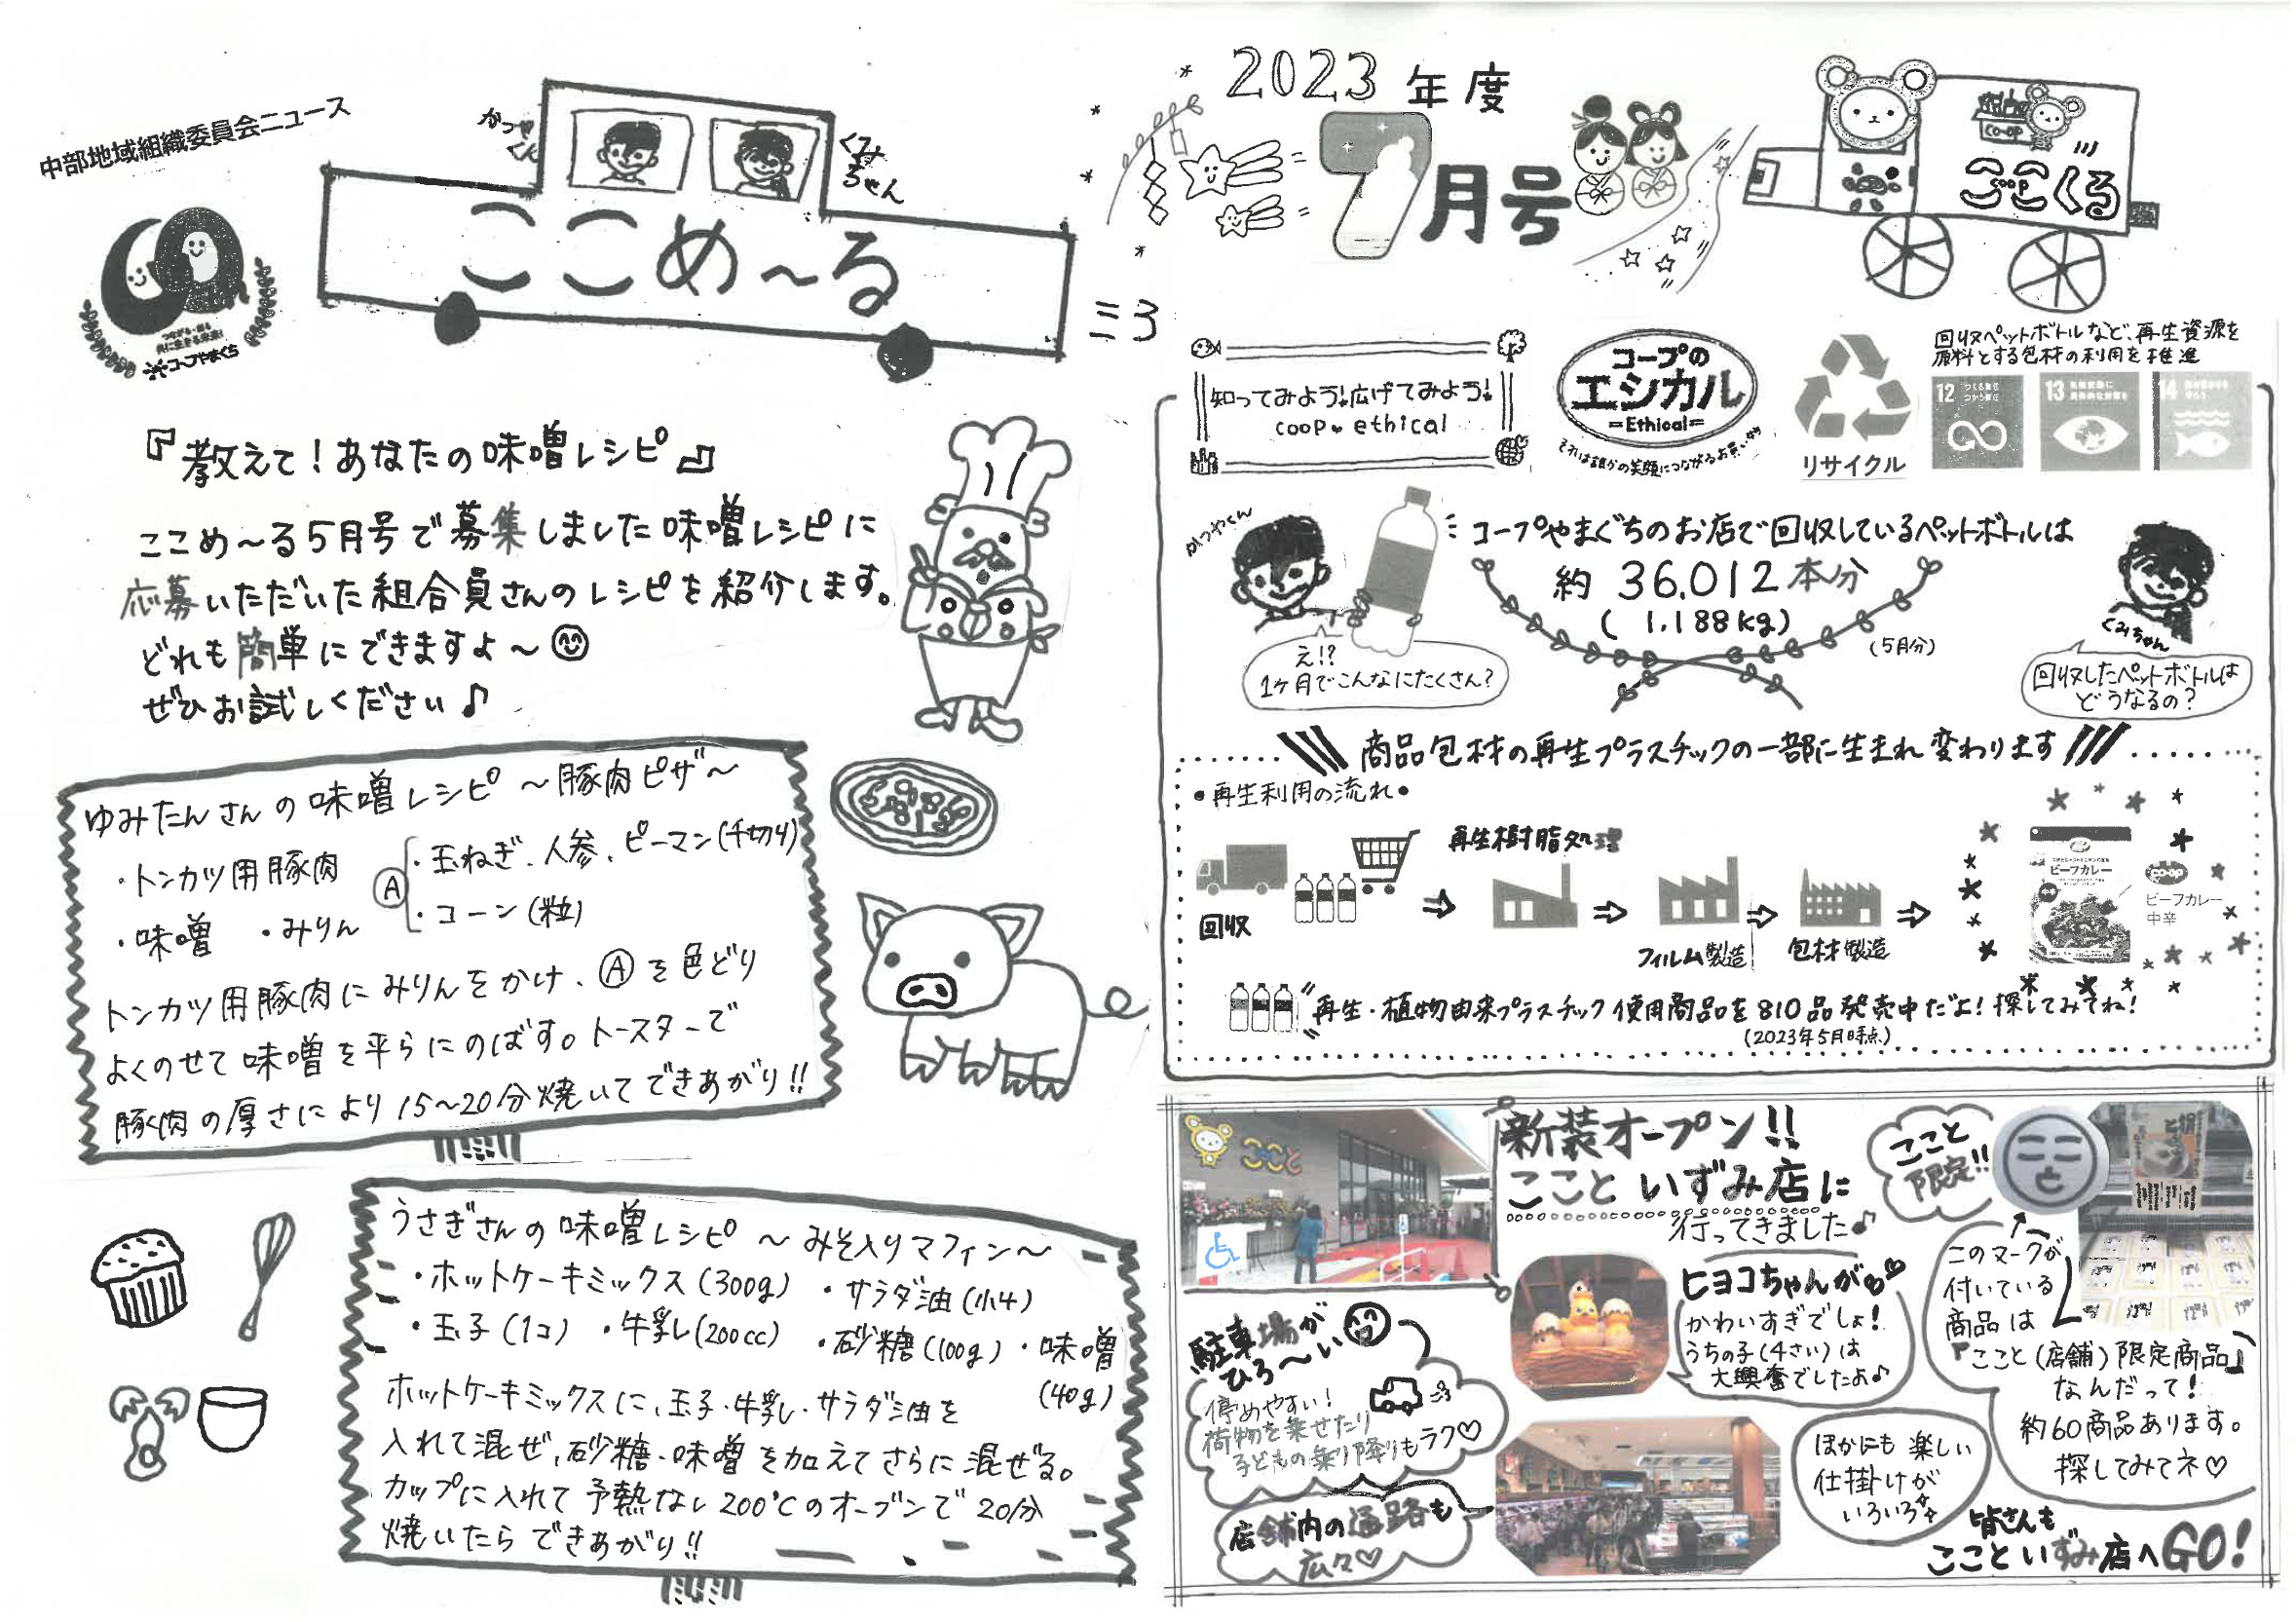 中部地域組織委員会ニュース
かつやくん
くみちゃん
ここめ～る
つながる・創る
共に生きる未来!
コープやまぐち
2023年度
7月号
co-op
ここくる
coop
『教えて!あなたの味噌レシピ』
ここめ～る5月号で募集しました味噌レシピに
応募いただいた組合員さんのレシピを紹介します。
どれも簡単にできますよ～
ぜひお試しください♪
ゆみたんさんの味噌レシピ ～豚肉ピザ～
・トンカツ用豚肉
・味噌 ・みりん
Ⓐ
・玉ねぎ、人参、ピーマン(千切り)
・コーン(粒)
トンカツ用豚肉にみりんをかけ、Ⓐを色どり
よくのせて味噌を平らにのばす。トースターで
豚肉の厚さにより15～20分焼いてできあがり!!
うさぎさんの味噌レシピ ～みそ入りマフィン～
・ホットケーキミックス(300g) ・サラダ油(小4)
・玉子(1コ) ・牛乳(200cc) ・砂糖(100g) ・味噌
(40g)
ホットケーキミックスに、玉子・牛乳・サラダ油を
入れて混ぜ、砂糖・味噌を加えてさらに混ぜる。
カップに入れて予熱なし200℃のオーブンで20分
焼いたらできあがり!!
知ってみよう!広げてみよう!
coop♥ethical
コープの
エシカル
=Ethical=
それは誰かの笑顔につながるお買い物
リサイクル
回収ペットボトルなど、再生資源を
原料とする包材の利用を推進
12 つくる責任
つかう責任
13 気候変動に
具体的な対策を
14 海の豊かさを
守ろう
かつやくん
コープやまぐちのお店で回収しているペットボトルは
約 36,012本分
( 1,188kg)
(5月分)
え!?
1ヶ月でこんなにたくさん?
くみちゃん
回収したペットボトルは
どうなるの?
商品包材の再生プラスチックの一部に生まれ変わります
●再生利用の流れ●
回収
再生樹脂処理
フィルム製造
包材製造
ビーフカレー
co-op
ビーフカレー
中辛
再生・植物由来プラスチック使用商品を810品発売中だよ!探してみてね!
(2023年5月時点)
ここと
新装オープン!!
ここと いずみ店に
行ってきました♪
ここと
限定!!
このマークが
付いている
商品は
『ここと(店舗)限定商品』
なんだって!
約60商品あります。
探してみてネ♡
ヒヨコちゃんが
かわいすぎでしょ!
うちの子(4さい)は
大興奮でしたよ♪
駐車場が
ひろ～い
停めやすい!
荷物を乗せたり
子どもの乗り降りもラク♡
店舗内の通路も
広々♡
ほかにも楽しい
仕掛けが
いろいろ
皆さんも
ここといずみ店へGO!